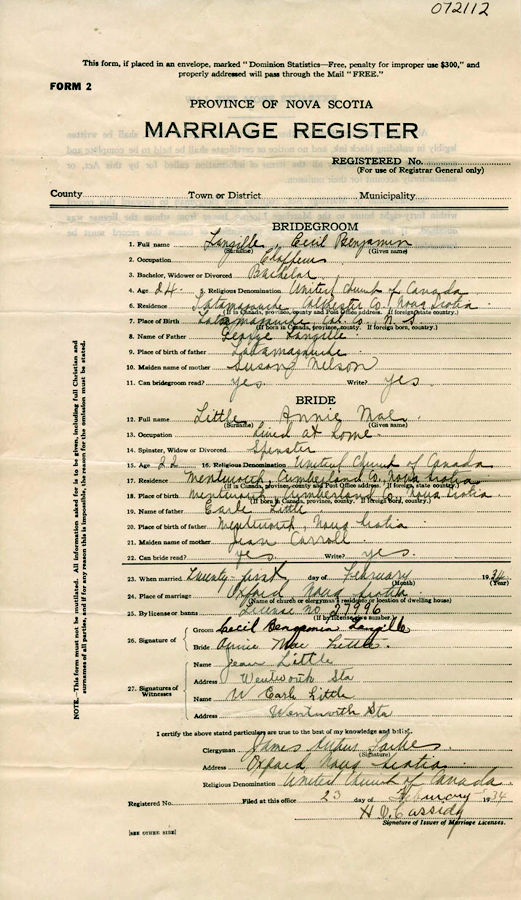 072112
This form, if placed in an envelope, marked "Dominion Statistics—Free, penalty for improper use $300," and
properly addressed will pass through the Mail "FREE."
FORM 2
PROVINCE OF NOVA SCOTIA
MARRIAGE REGISTER
REGISTERED No.
(For use of Registrar General only)
County Town or District Municipality
BRIDEGROOM
1. Full name Langille, Cecil Benjamin
(Surname) (Given name)
2. Occupation Chaffeur
3. Bachelor, Widower or Divorced Bachelor
4. Age 24 5. Religious Denomination United Church of Canada
6. Residence Tatamagouche Colchester Co., Nova Scotia
(If in Canada, province, county and Post Office address. If foreign state country.)
7. Place of Birth Tatamagouche, Col. Co., N. S.
(If born in Canada, province, county. If foreign born, country.)
8. Name of Father George Langille
9. Place of birth of father Tatamagouche
10. Maiden name of mother Susan Nelson
11. Can bridegroom read? yes Write? yes
BRIDE
12. Full name Little Annie Mae
(Surname) (Given name)
13. Occupation Lived at Home
14. Spinster, Widow or Divorced Spinster
15. Age 22 16. Religious Denomination United Church of Canada
17. Residence Wentworth, Cumberland Co., Nova Scotia
(If in Canada, province, county and Post Office address. If foreign state country.)
18. Place of birth Wentworth, Cumberland Co, Nova Scotia
(If born in Canada, province, county. If foreign born, country.)
19. Name of father Earle Little
20. Place of birth of father Wentworth, Nova Scotia
21. Maiden name of mother Jean Carroll
22. Can bride read? yes. Write? yes.
23. When married Twenty-first day of February 1934
(Month) (Year)
24. Place of marriage Oxford Nova Scotia
(Name of church or clergyman's residence or location of dwelling house)
25. By license or banns License no 27996
(If by license give number.)
26. Signature of
Groom Cecil Benjamin Langille
Bride Annie Mae Little.
27. Signatures of
Witnesses
Name Jean Little
Address Wentworth Sta
Name W Earle Little
Address Wentworth Sta
I certify the above stated particulars are true to the best of my knowledge and belief.
Clergyman James
(Signature)
Address Oxford Nova Scotia
Religious Denomination United Church of Canada
Registered No. Filed at this office 23 day of February 1934
H V Cassidy
Signature of Issuer of Marriage Licenses.
[SEE OTHER SIDE]
NOTE.—This form must not be mutilated. All information asked for is to be given, including full Christian and
surnames of all parties, and if for any reason this is impossible, the reason for the omission must be stated.